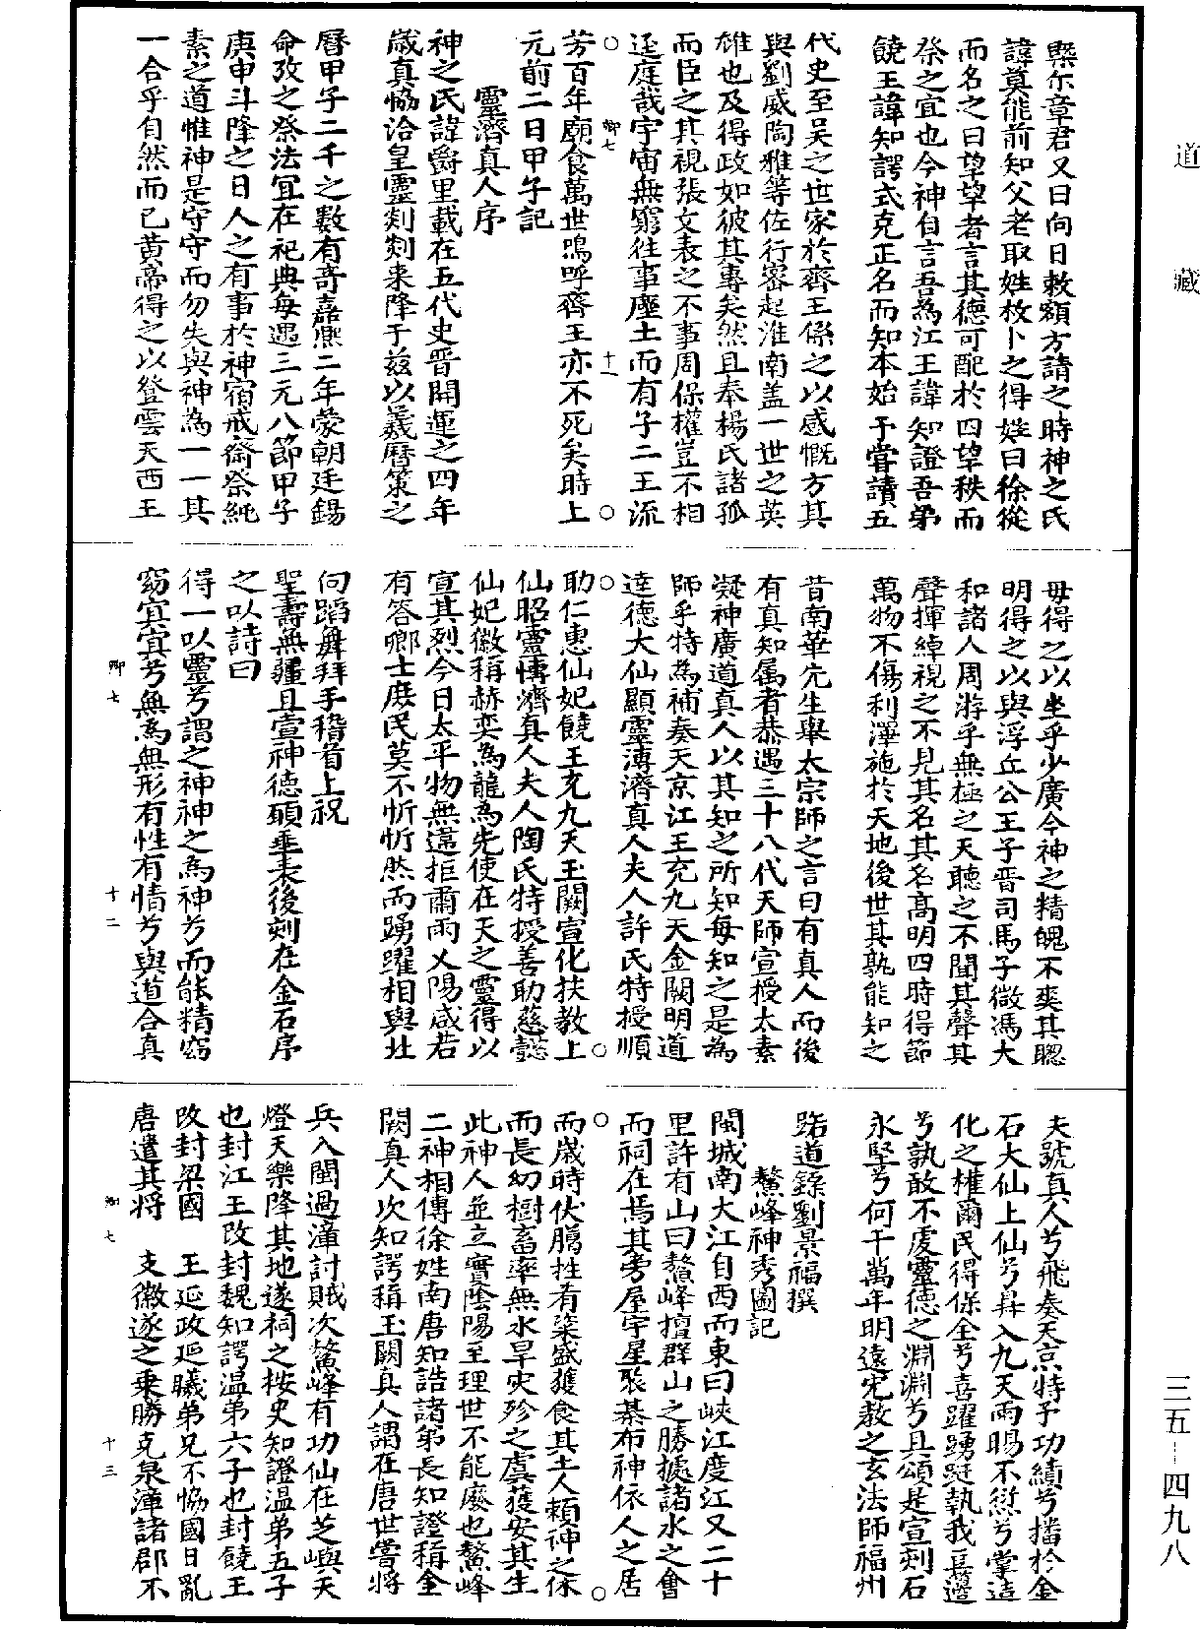 道藏
三五—四九八
槩尓章君又曰向日敕額方請之時神之氏
諱莫能前知父老取姓枚卜之得姓曰徐從
而名之曰望望者言其德可配於四望秩而
祭之宜也今神自言吾為江王諱知證吾弟
饒王諱知諤式克正名而知本始予嘗讀五
代史至吳之世家於齊王係之以感慨方其
與劉威陶雅等佐行密起淮南盖一世之英
雄也及得政如彼其專矣然且奉楊氏諸孤
而臣之其視張文表之不事周保權豈不相
逕庭哉宇宙無窮往事塵土而有子二王流
芳百年廟食萬世嗚呼齊王亦不死矣時上
元前二日甲午記
靈濟真人序
神之氏諱爵里載在五代史晋開運之四年
歲真協洽皇靈剡剡来降于兹以羲曆筞之
曆甲子二千之數有竒嘉熙二年蒙朝廷錫
命攷之祭法宜在祀典每遇三元八節甲子
庚申斗降之日人之有事於神宿戒齋祭純
素之道惟神是守守而勿失與神為一一其
一合乎自然而已黄帝得之以登雲天西王
母得之以坐乎少廣今神之精魄不爽其聰
明得之以與浮丘公王子晋司馬子微馮大
和諸人周游乎無極之天聽之不聞其聲其
聲揮綽視之不見其名其名高明四時得節
萬物不傷利澤施於天地後世其孰能知之
昔南華先生舉太宗師之言曰有真人而後
有真知属者恭遇三十八代天師宣授太素
凝神廣道真人以其知之所知每知之是為
師乎特為補奏天京江王充九天金闕明道
達德大仙顯靈溥濟真人夫人許氏特授順
助仁惠仙妃饒王充九天玉闕宣化扶教上
仙昭靈博濟真人夫人陶氏特授善助慈懿
仙妃徽稱赫奕為龍為光使在天之靈得以
宣其烈今日太平物無違拒爾雨乂陽咸若
有答鄉士庶民莫不忻忻然而踴躍相與北
向蹈舞拜手稽首上祝
聖壽無疆且壹神德願垂表後刻在金石序
之以詩曰
得一以靈兮謂之神神之為神兮而能精窈
窈冥冥兮無為無形有性有情兮與道合真
夫號真人兮飛奏天京特予功績兮播於金
石大仙上仙兮昇入九天雨暘不愆兮掌造
化之權爾民得保全兮喜躍踴蹈執我長邉
兮孰敢不虔靈德之淵淵兮具頌是宣刻石
永堅兮何千萬年明遠宪教之玄法師福州
路道錄劉景福撰
鰲峰神秀圖記
閩城南大江自西而東曰峽江度江又二十
里許有山曰鰲峰擅群山之勝據諸水之會
而祠在焉其旁屋宇星聚棊布神依人之居
而歲時伏臈牲有粢盛獲食其土人賴神之休
而長幼樹畜率無水旱灾殄之虞獲安其生
此神人並立實陰陽至理世不能廢也鰲峰
二神相傳徐姓南唐知誥諸弟長知證稱金
闕真人次知諤稱玉闕真人謂在唐世嘗將
兵入閩過漳討賊次鰲峰有功仙在芝嶼天
燈天樂降其地遂祠之桉史知證温弟五子
也封江王改封魏知諤温弟六子也封饒王
改封梁國　王延政延曦弟兄不恊國日亂
唐遣其將　支徽遂之乗勝克泉漳諸郡不
卿七　十一
卿七　十二
卿七　十三